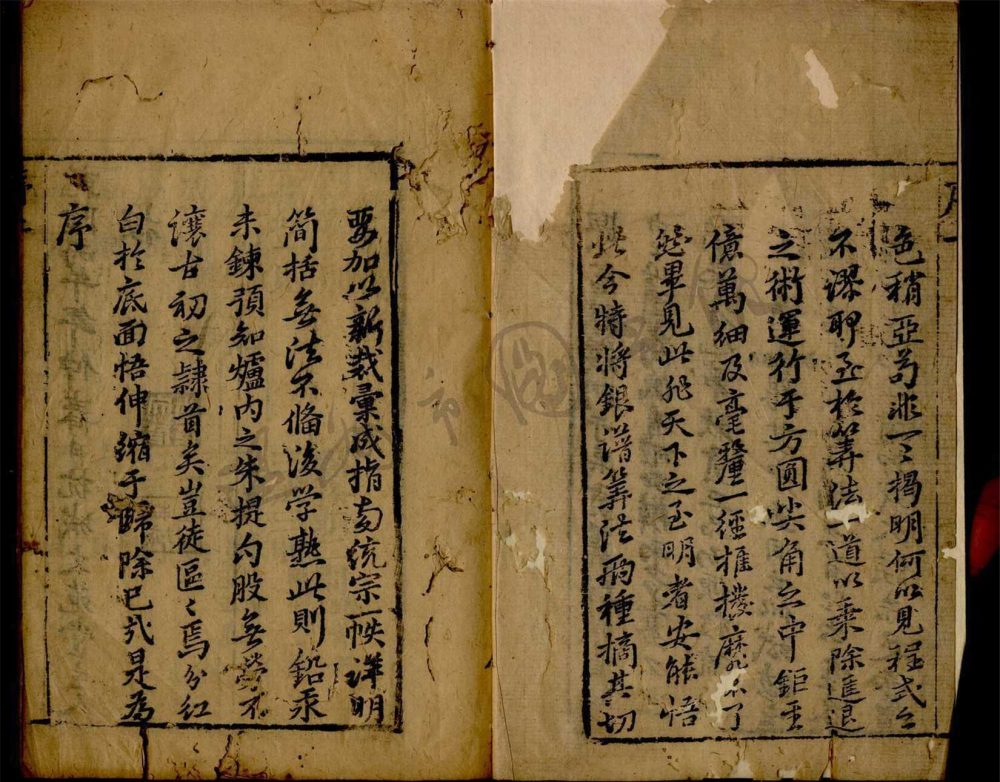 色稍亞苟非一〻揭明何以見程式之
不謬耶至於筭法一道以乗除進退
之術運行于方圓尖角之中鉅至
億萬細及毫釐一經推撥靡不了
然畢見此非天下之至明者安能悟
此今特將銀譜筭法兩種摘其切
要加以新裁彙成指南統宗一帙詳明
簡括無法不俻後学熟此則鉛汞
未鍊預知爐內之朱提勾股無勞不
讓古初之隷首矣豈徒區〻焉分紅
白於底面悟伸縮于歸除已哉是為
序